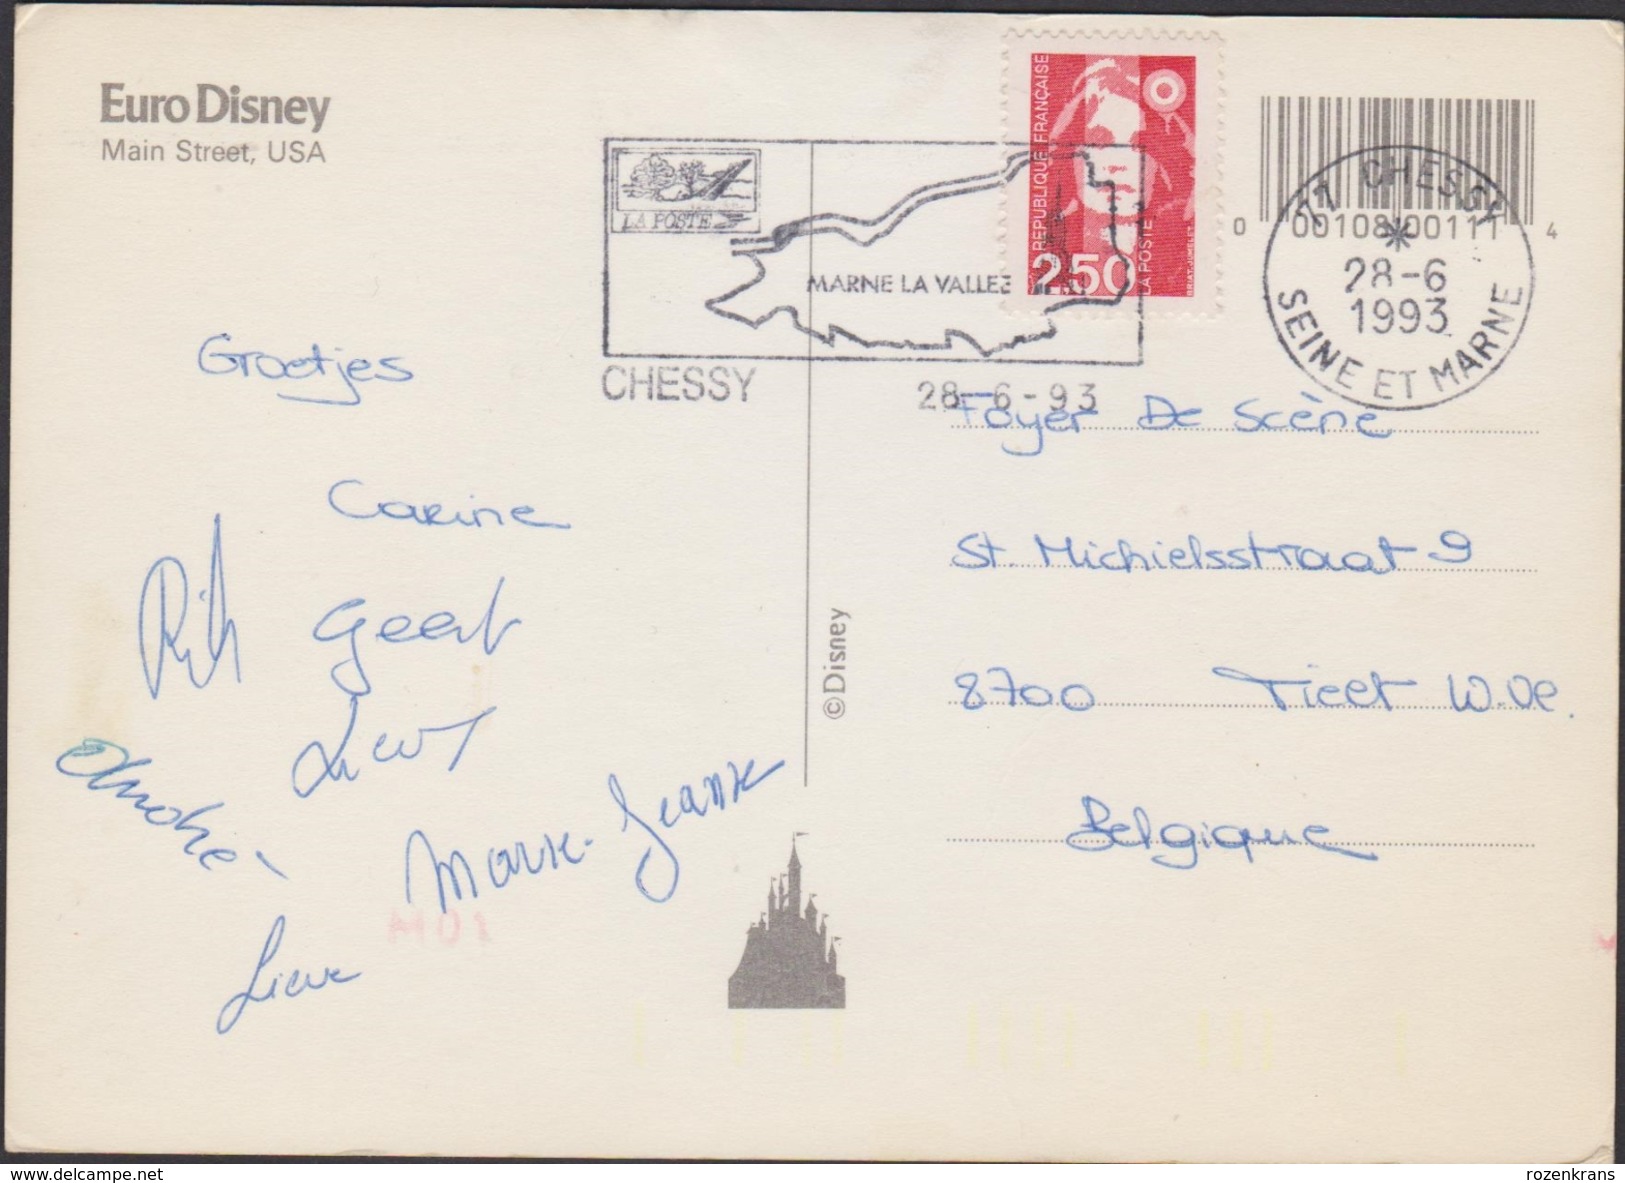 Euro Disney
Main Street, USA
LA POSTE
MARNE LA VALLEE
CHESSY
28-6-93
REPUBLIQUE FRANÇAISE
2,50
LA POSTE
0 00108 00111 4
77 CHESSY
*
28-6
1993
SEINE ET MARNE
Groetjes
Carine
Rik
Geert
André
Marie-Jeanne
Lieve
©Disney
Foyer De Scène
St. Michielsstraat 9
8700 Tielt W.Vl.
Belgique
delcampe.net
rozenkrans